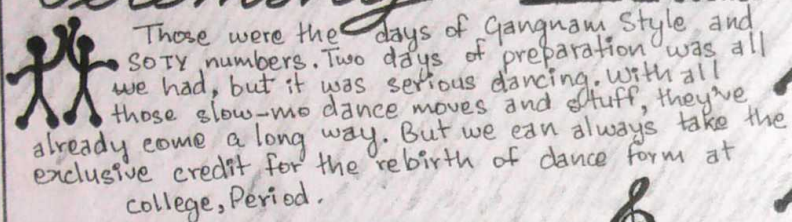 Those were the days of Gangnam Style and
SOTY numbers. Two days of preparation was all
we had, but it was serious dancing. With all
those slow-mo dance moves and stuff, they've
already come a long way. But we can always take the
exclusive credit for the rebirth of dance form at
college, Period.